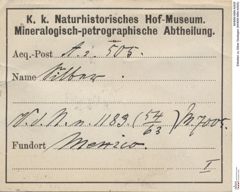 K. k. Naturhistorisches Hof-Museum.
Mineralogisch-petrographische Abtheilung.
Acq.-Post A. i. 505.
Name Silber.
N. d. N. n. 1183. (54/63) M. 7005.
Fundort Mexico.
I